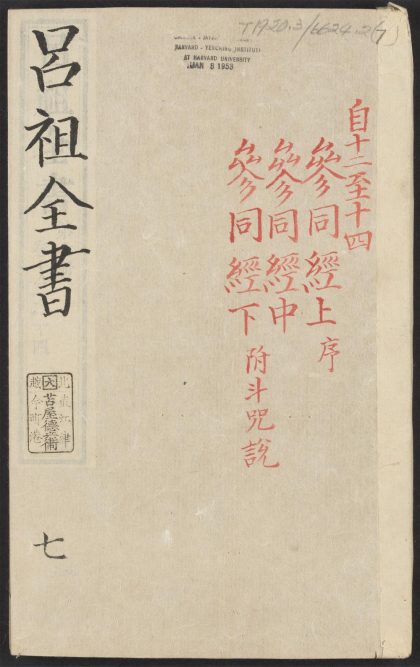 T1920.3/6624.2(7)
HARVARD-YENCHING INSTITUTE
AT HARVARD UNIVERSITY
JAN 8 1953
自十二至十四
參同經上 序
參同經中
參同經下 附斗咒說
呂祖全書
苫屋德兵衛
七